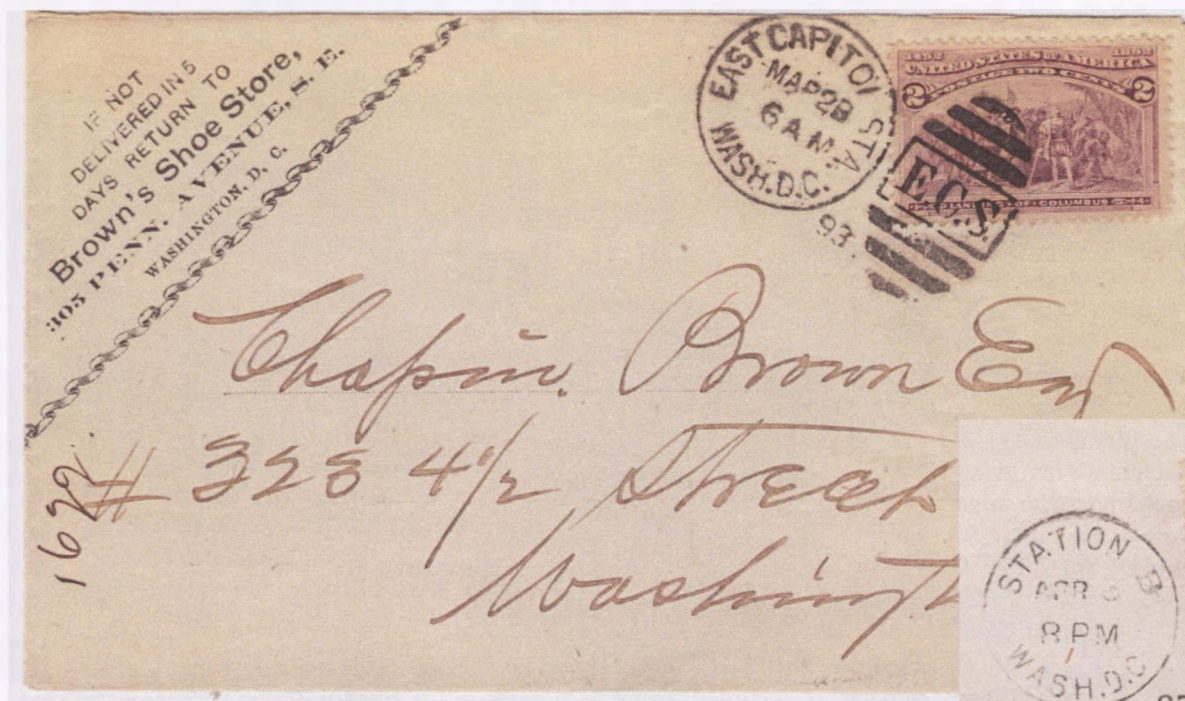 IF NOT
DELIVERED IN 5
DAYS RETURN TO
Brown's Shoe Store,
305 PENN. AVENUE, S. E.
WASHINGTON, D. C.
EAST CAPITOL STA.
MAR 28
6 A M
WASH. D.C.
93
1492 1892
UNITED STATES OF AMERICA
POSTAGE TWO CENTS
2 2
E.C.S.
LANDING OF COLUMBUS
Chapin Brown Esq
# 323 4 1/2 Street
Washingt
1622
STATION B
APR
8 PM
1
WASH. D.C.